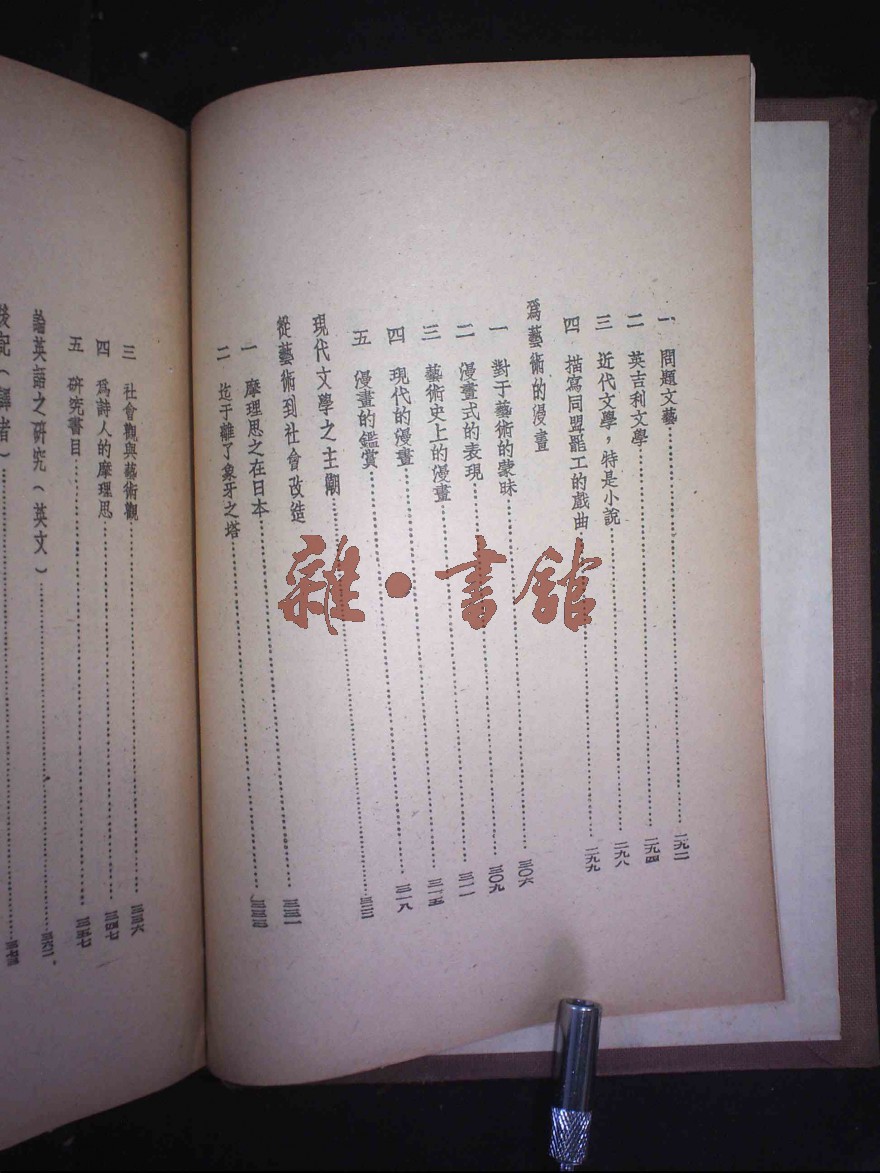 一 問題文藝……二九一
二 英吉利文學……二九四
三 近代文學，特是小說……二九八
四 描寫同盟罷工的戲曲……二九九
爲藝術的漫畫
一 對于藝術的蒙昧……三〇六
二 漫畫式的表現……三〇九
三 藝術史上的漫畫……三一一
四 現代的漫畫……三一五
五 漫畫的鑑賞……三一八
現代文學之主潮……
從藝術到社會改造
一 摩理思之在日本……三三一
二 迄于離了象牙之塔……三三三
三 社會觀與藝術觀……三三六
四 爲詩人的摩理思……三四七
五 研究書目……三五七
論英語之研究（英文）……三六二
後記（譯者）……三七三
雜·書館